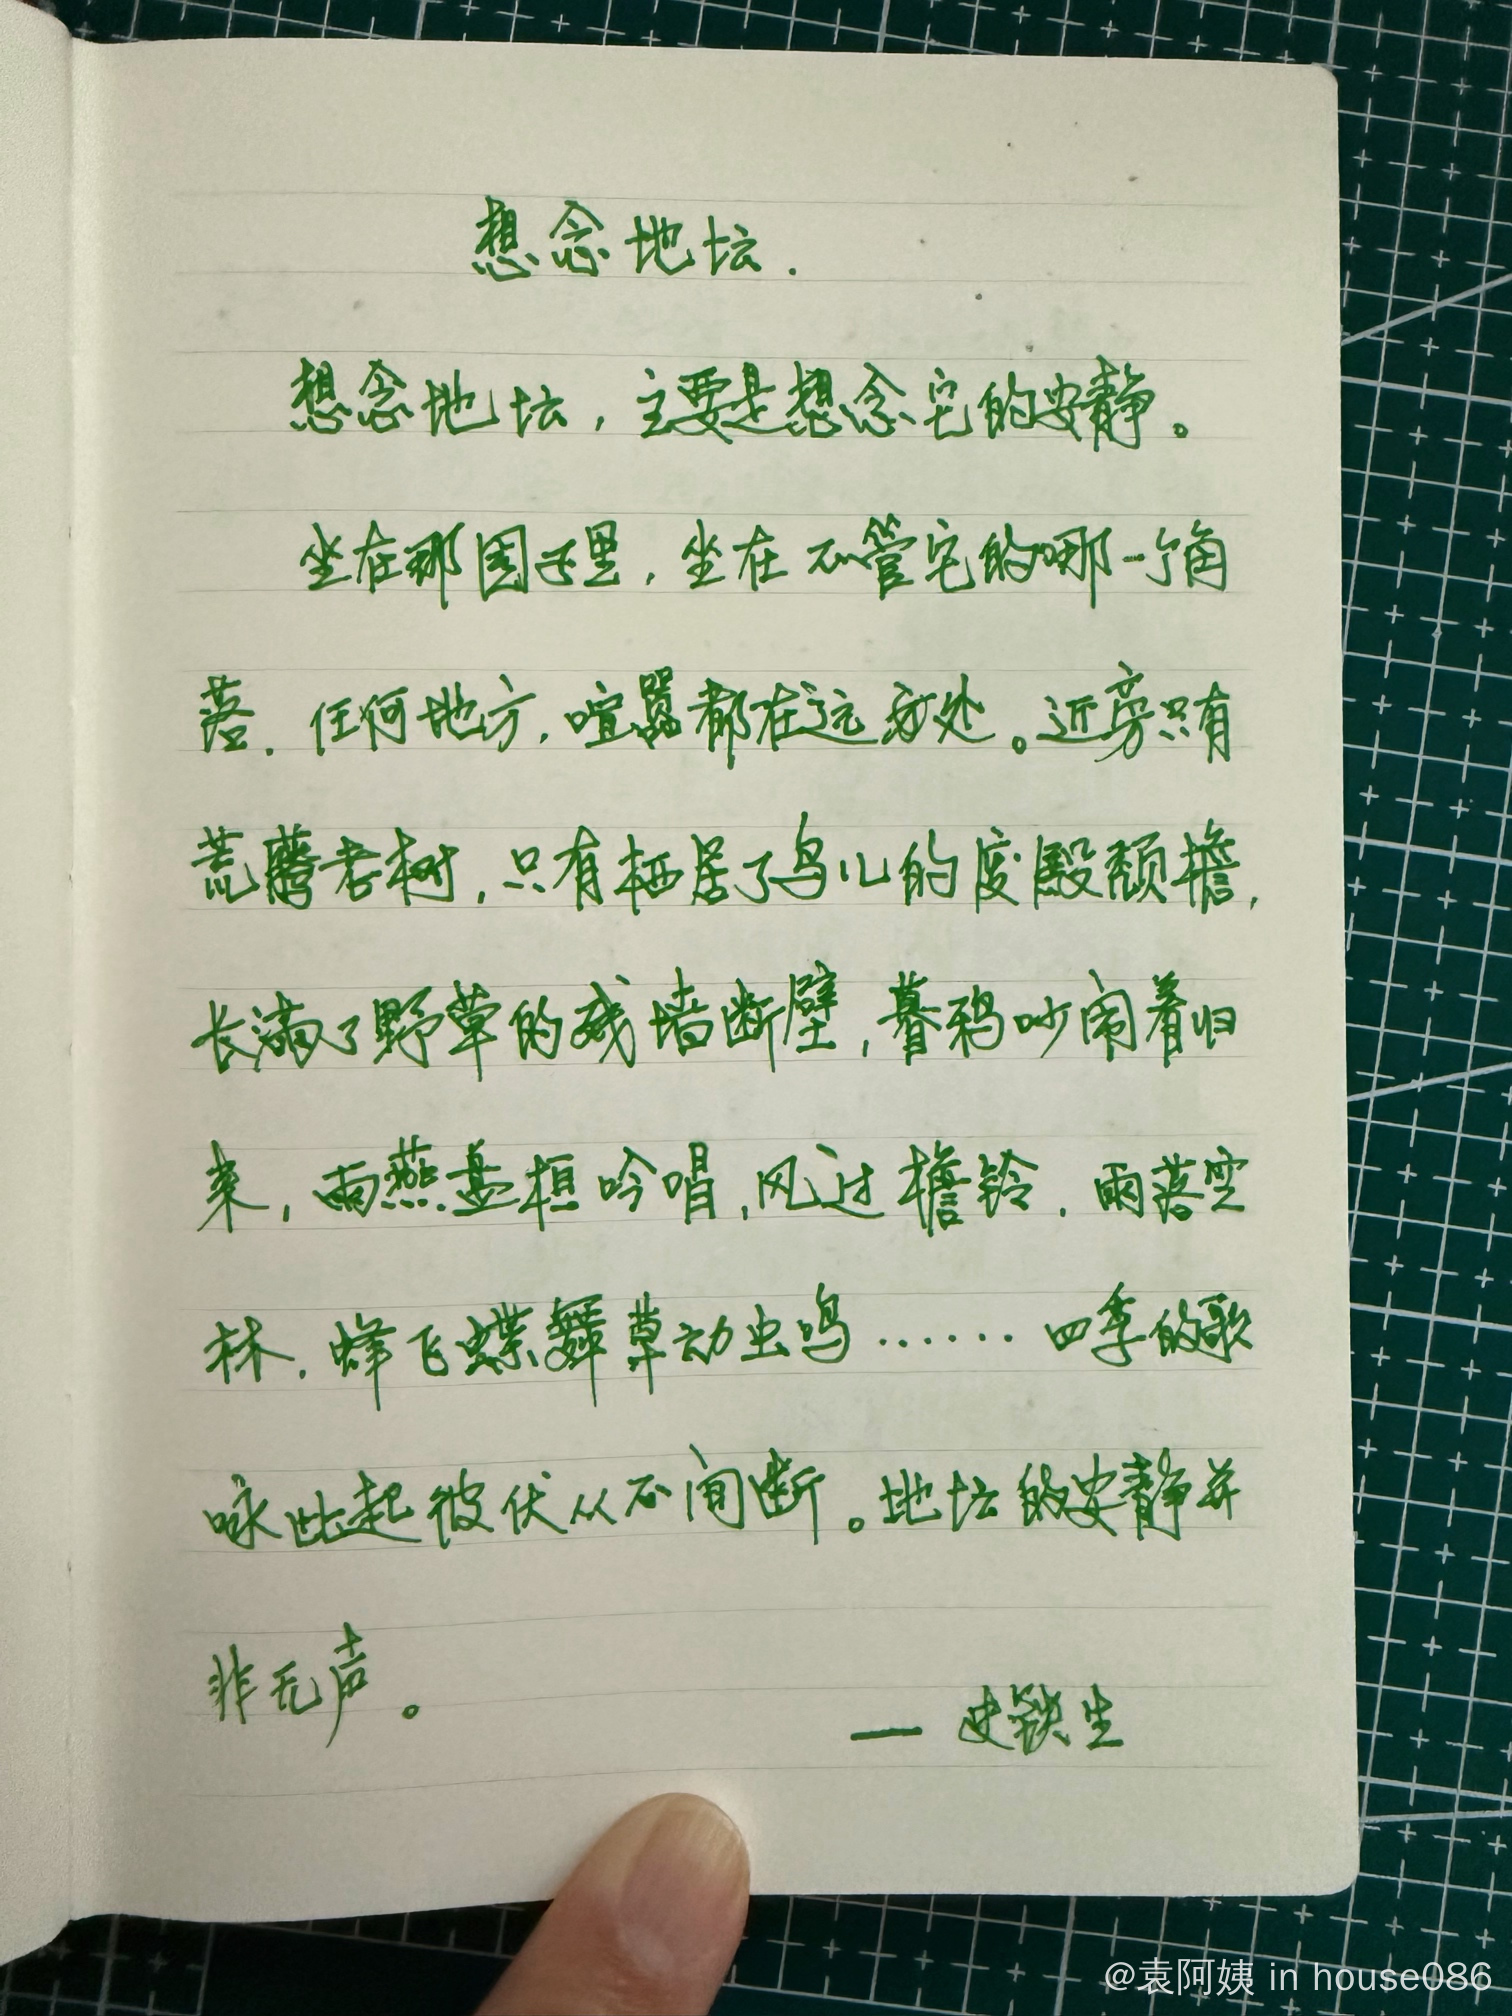 想念地坛.
想念地坛，主要是想念它的安静。
坐在那园子里，坐在不管它的哪一个角
落，任何地方，喧嚣都在远方处。近旁只有
荒藤老树，只有栖居了鸟儿的废殿颓檐，
长满了野草的残墙断壁，暮鸦吵闹着归
来，雨燕盘桓吟唱，风过檐铃，雨落空
林，蜂飞蝶舞草动虫鸣……四季的歌
咏此起彼伏从不间断。地坛的安静并
非无声。
— 史铁生
@袁阿姨 in house086